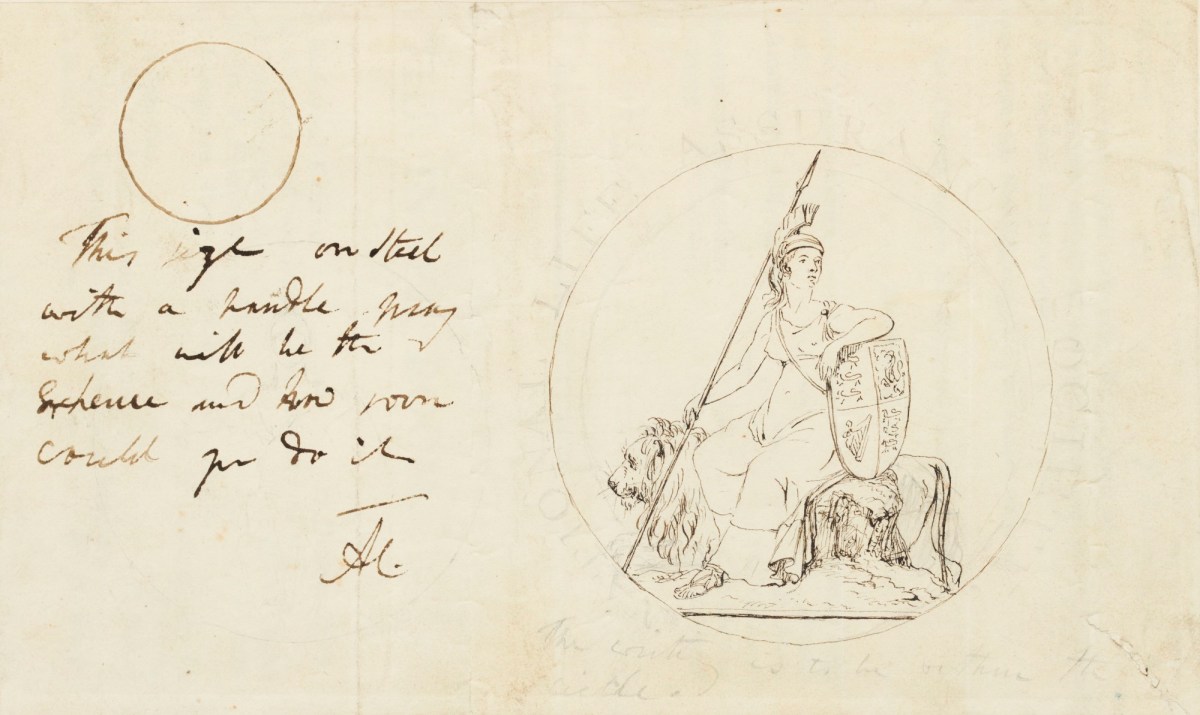 This size on steel
with a handle pray
what will be the
Expence and how soon
could yr do it
AC.
The writing is to be within the
circle.